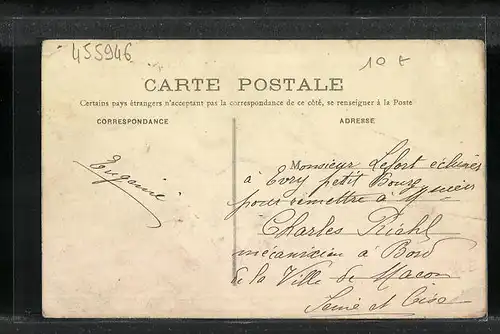 455946
10 t
CARTE POSTALE
Certains pays étrangers n'acceptant pas la correspondance de ce côté, se renseigner à la Poste
CORRESPONDANCE
ADRESSE
Eugénie
Monsieur Lefort eclusier
à Evry petit Bourg
pour remettre à
Charles Riehl
mécanicien à Bord
de la Ville de Macon
Seine et Oise